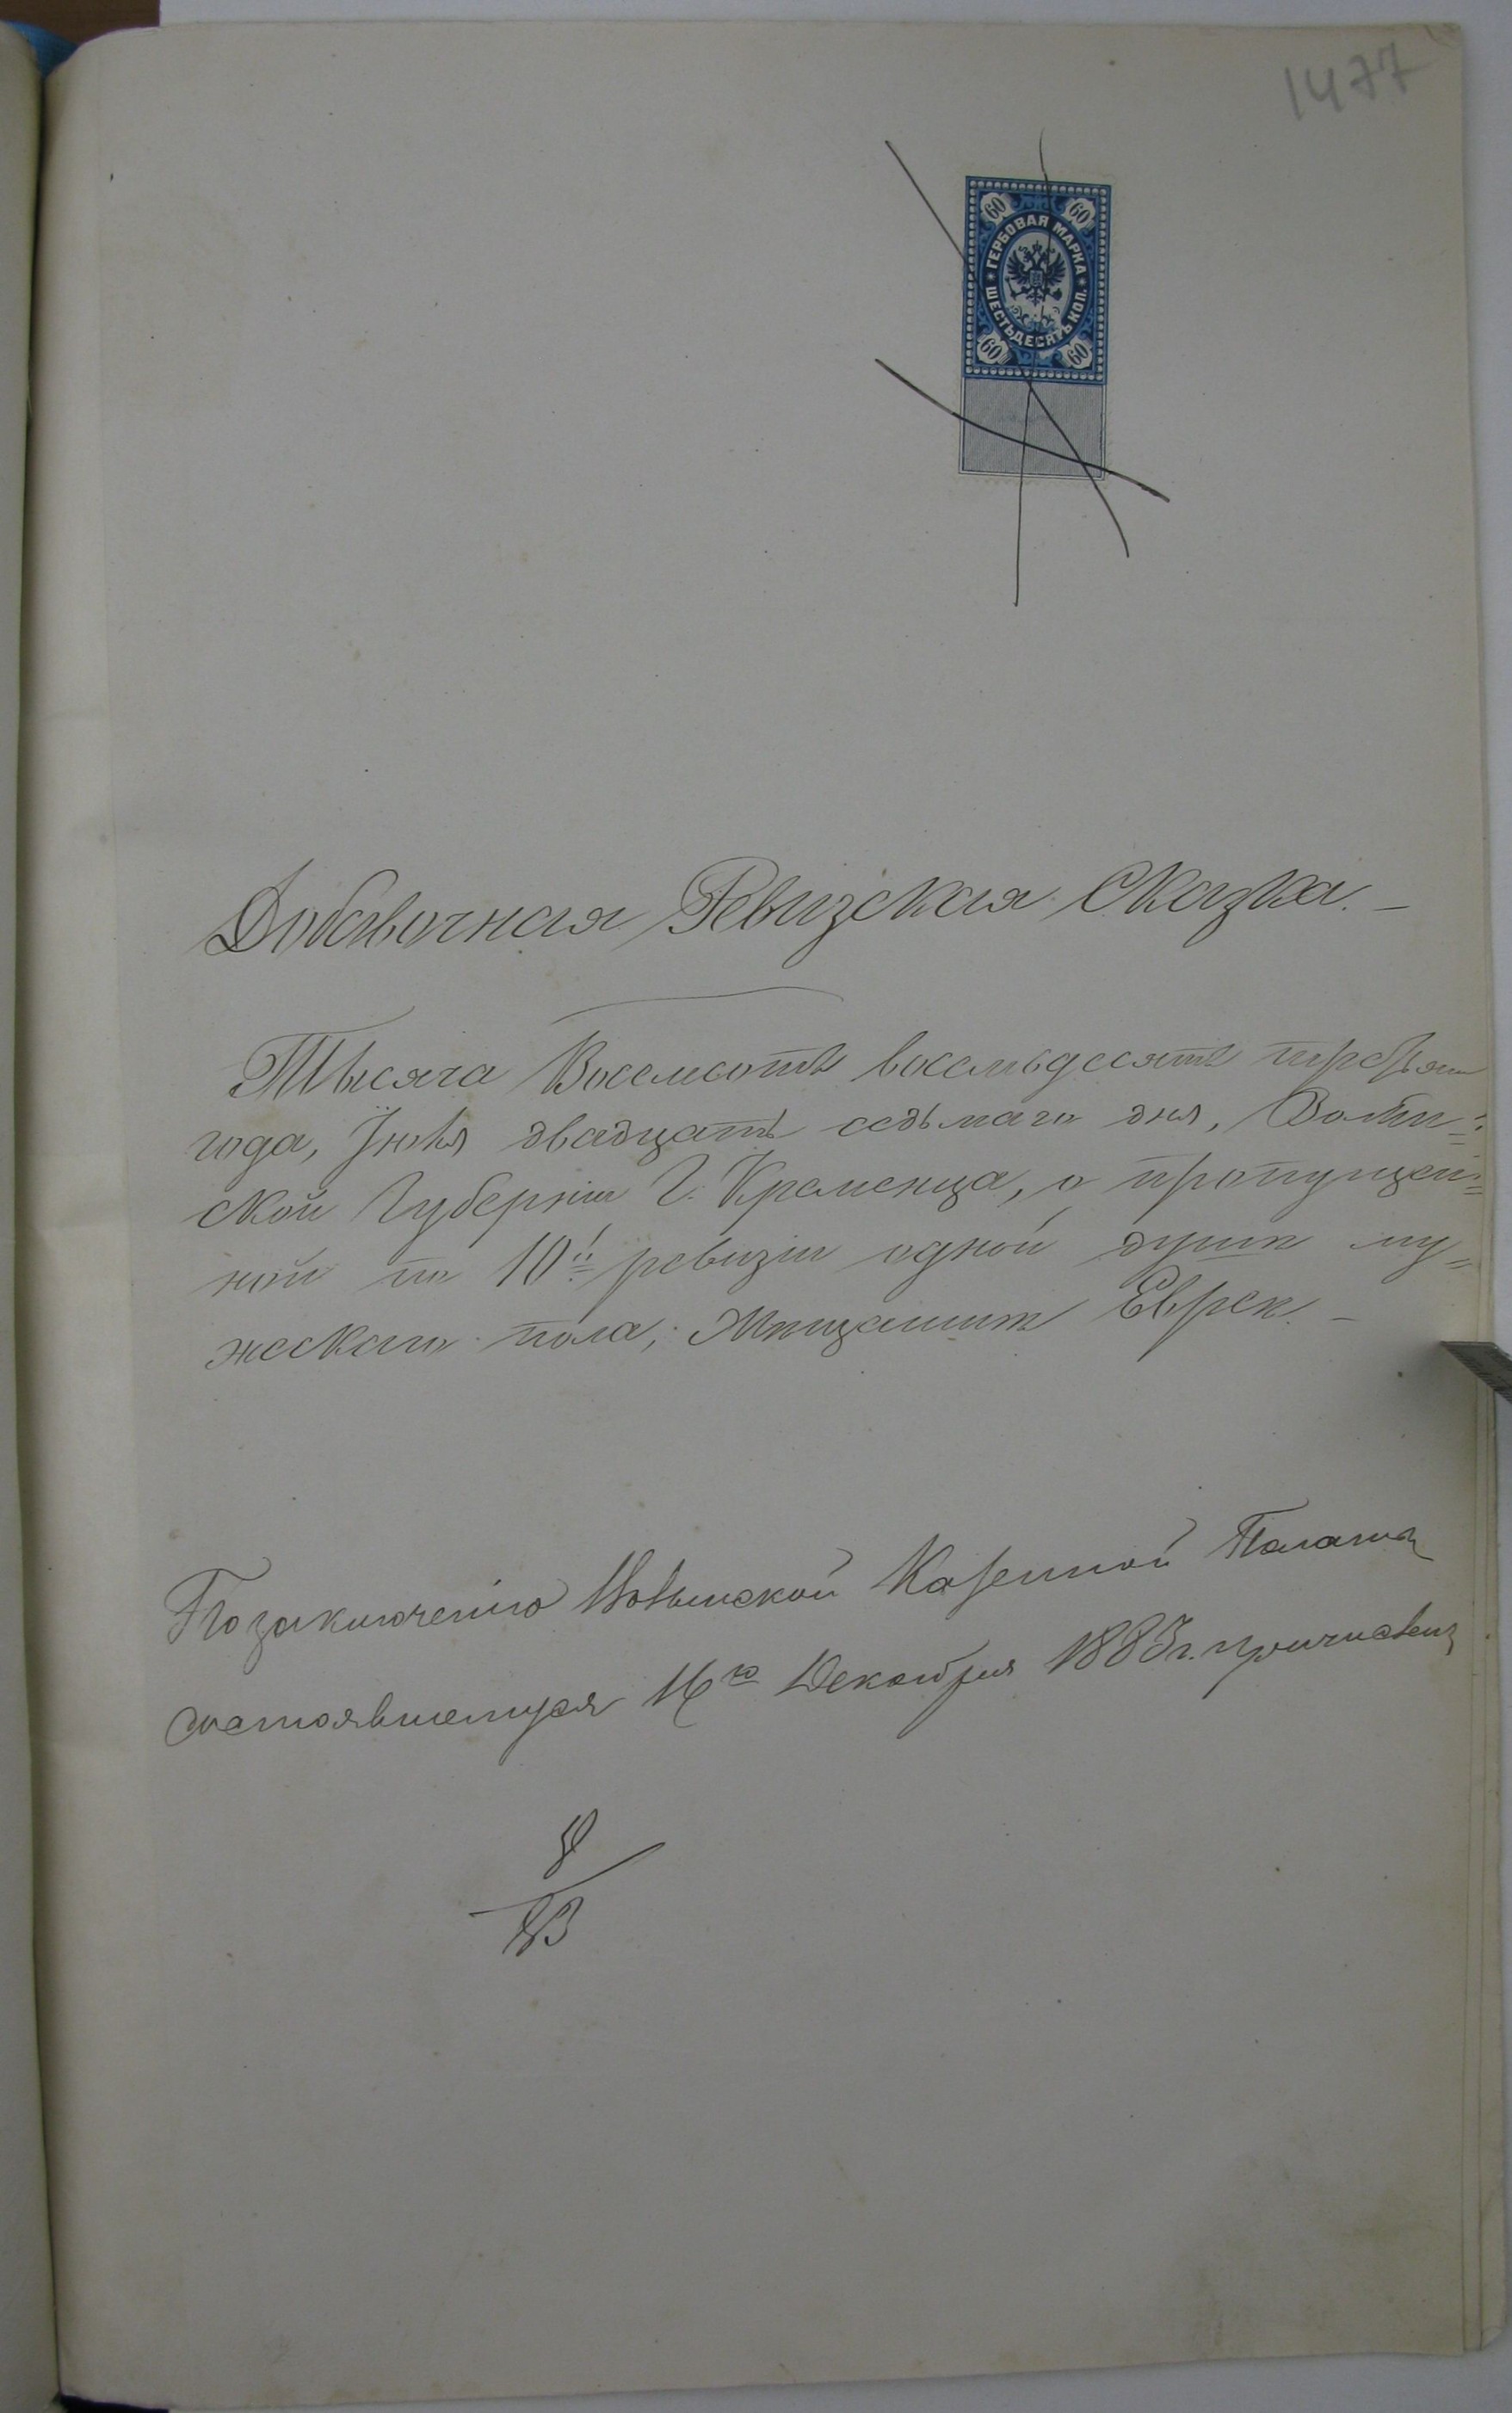 1477
60 60
ГЕРБОВАЯ МАРКА
ШЕСТЬДЕСЯТЬ КОП.
60 60
Добавочная Ревизская Сказка. —
Тысяча Восемсотъ восемьдесятъ третьяго
года, Іюня двадцать седьмаго дня, Волын=
ской Губерніи Г. Кременца, о пропущен=
ной по 10й ревизіи одной души му=
жескаго пола, Мѣщанинѣ Евреѣ. —
По заключенію Волынской Казенной Палаты
состоявшемуся 16го Декабря 1883 г. причислены
8
83